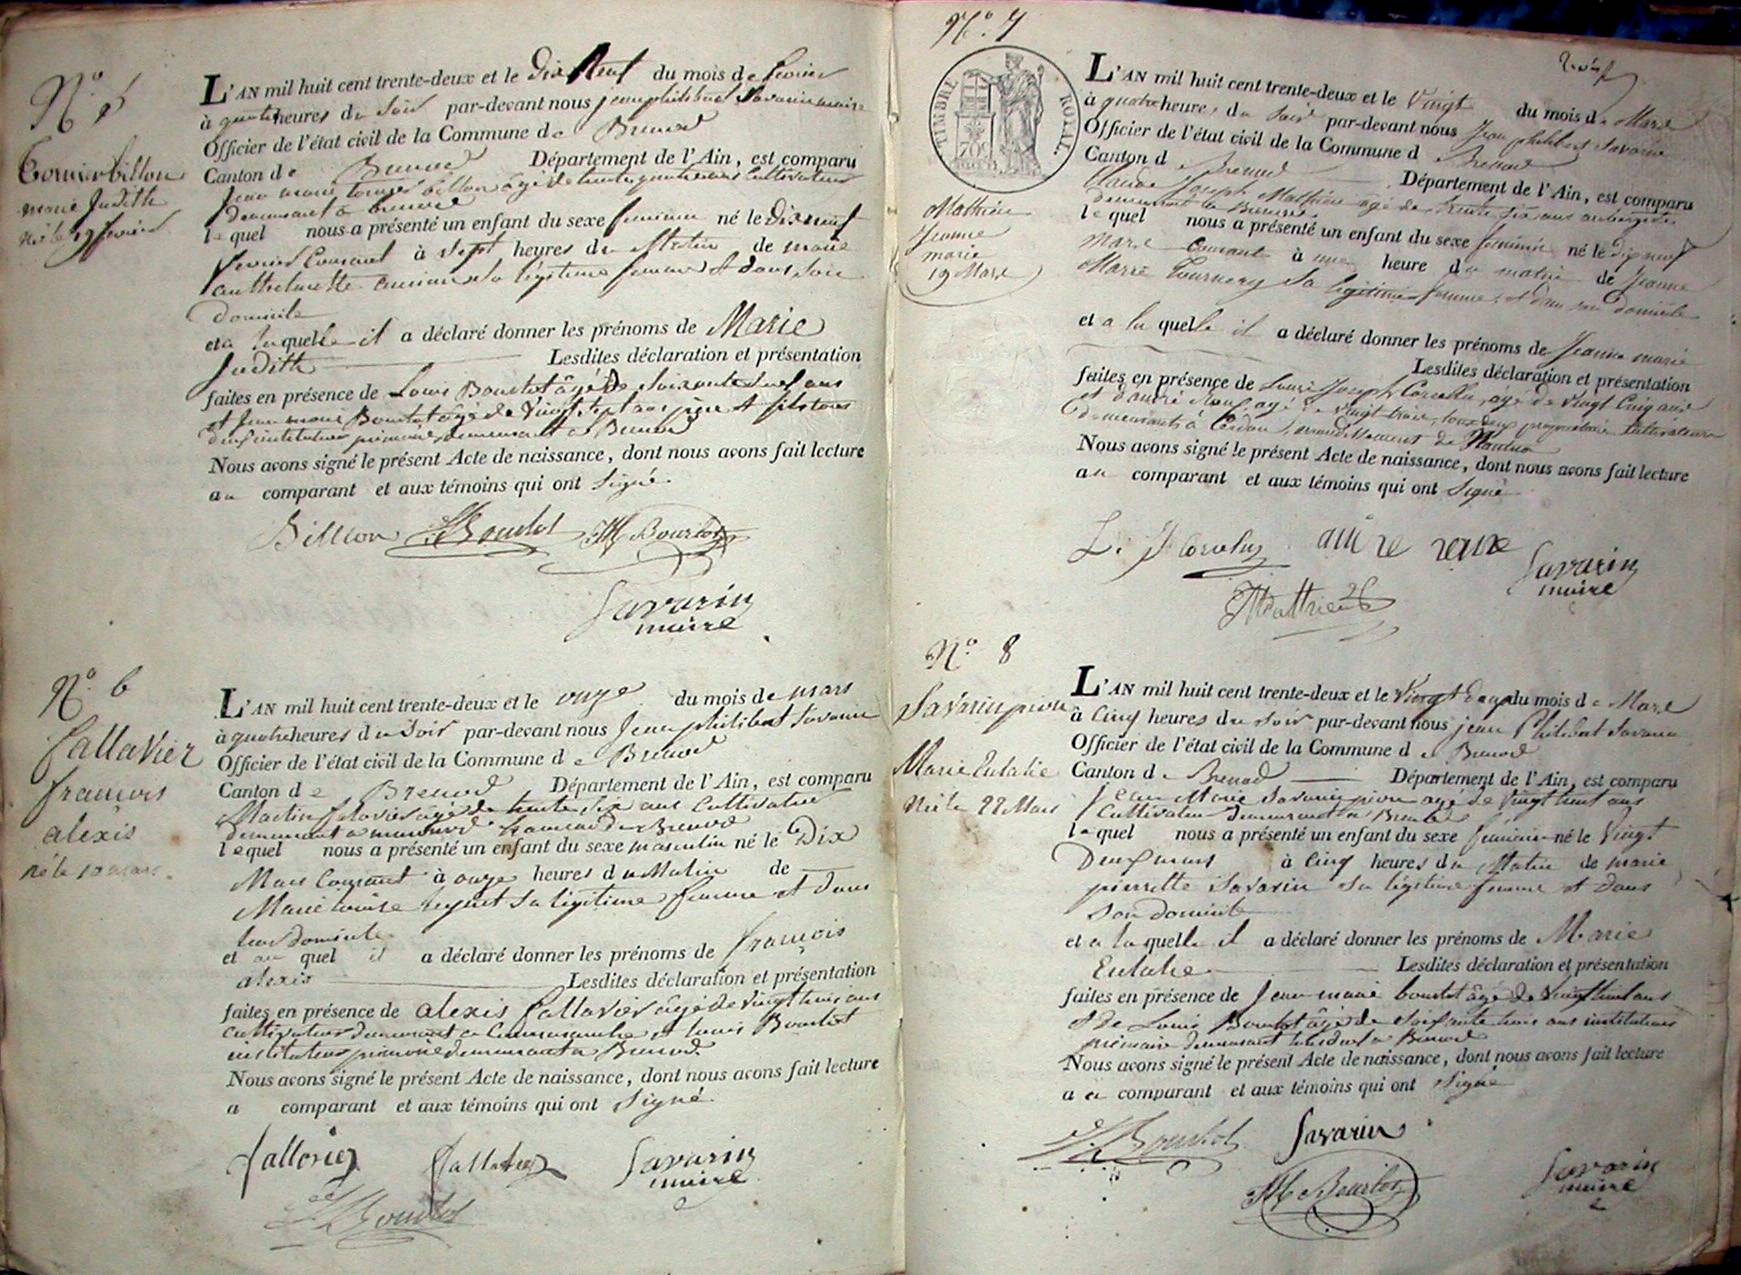 N.º 5
billon
marie Judith
né le 19 fevrier
L'AN mil huit cent trente-deux et le dix Neuf du mois de fevrier
à quatre heures du Soir par-devant nous jean philibert Savarin maire
Officier de l'état civil de la Commune de Brenod
Canton de Brenod Département de l'Ain, est comparu
Jean marie billon âgé de trente quatre ans Cultivateur
demeurant à brenod
lequel nous a présenté un enfant du sexe feminin né le dix neuf
fevrier Courant à Sept heures du Matin de marie
anthelmette sa légitime femme et dans son
domicile
et a la quelle il a déclaré donner les prénoms de Marie
Judith Lesdites déclaration et présentation
faites en présence de Louis Bourlot âgé de Soixante deux ans
et Jean marie Bourlot âgé de vingt sept ans père et fils tous
deux instituteurs primaires demeurant à Brenod
Nous avons signé le présent Acte de naissance, dont nous avons fait lecture
au comparant et aux témoins qui ont Signé
Billion Bourlot JM Bourlot
Savarin
maire
N.º 6
fallavier
francois
alexis
né le 10 mars
L'AN mil huit cent trente-deux et le onze du mois de mars
à quatre heures du Soir par-devant nous Jean philibert Savarin
Officier de l'état civil de la Commune de Brenod
Canton de Brenod Département de l'Ain, est comparu
Martin falavier âgé de trente six ans Cultivateur
demeurant a hameau de Brenod
lequel nous a présenté un enfant du sexe masculin né le Dix
Mars Courant à onze heures du Matin de
Marie louise sa légitime femme et dans
leur domicile
et au quel il a déclaré donner les prénoms de francois
alexis Lesdites déclaration et présentation
faites en présence de alexis fallavier âgé de vingt huit ans
cultivateur demeurant a et louis Bourlot
instituteur primaire demeurant a Brenod
Nous avons signé le présent Acte de naissance, dont nous avons fait lecture
a comparant et aux témoins qui ont Signé
fallavier fallavier Savarin
maire
Bourlot
N.º 7
TIMBRE ROYAL
70
Mathieu
Jeanne
marie
19 Mars
L'AN mil huit cent trente-deux et le vingt du mois de Mars
à quatre heures du Soir par-devant nous Jean philibert Savarin
Officier de l'état civil de la Commune de Brenod
Canton de Brenod Département de l'Ain, est comparu
Claude Joseph Mathieu âgé de trente six ans aubergiste
demeurant a Brenod
lequel nous a présenté un enfant du sexe feminin né le dix neuf
Mars Courant à une heure du matin de Jeanne
Marie Tournery Sa légitime femme, et dans son domicile
et a la quelle il a déclaré donner les prénoms de Jeanne marie
Lesdites déclaration et présentation
faites en présence de Louis Joseph âgé de vingt Cinq ans
et d'andré âgé de vingt trois, tous deux propriétaires Cultivateurs
demeurants à Cerdon, arrondissement de Nantua
Nous avons signé le présent Acte de naissance, dont nous avons fait lecture
au comparant et aux témoins qui ont Signé
Savarin
maire
Mathieu
N.º 8
Savarin pion
Marie Eulalie
née le 22 Mars
L'AN mil huit cent trente-deux et le Vingt Deux du mois de Mars
à Cinq heures du soir par-devant nous jean Philibert Savarin
Officier de l'état civil de la Commune de Brenod
Canton de Brenod Département de l'Ain, est comparu
Jean Marie Savarin pion agé de vingt huit ans
Cultivateur demeurant a Brenod
lequel nous a présenté un enfant du sexe feminin né le Vingt
Deux mars à Cinq heures du Matin de marie
pierrette Savarin sa légitime femme et dans
son domicile
et a la quelle il a déclaré donner les prénoms de Marie
Eulalie Lesdites déclaration et présentation
faites en présence de Jean marie bourlot âgé de vingt huit ans
et de Louis Bourlot âgé de soixante trois ans instituteurs
primaire demeurant tous deux a Brenod
Nous avons signé le présent Acte de naissance, dont nous avons fait lecture
a u comparant et aux témoins qui ont Signé
Bourlot Savarin
JM Bourlot Savarin
maire